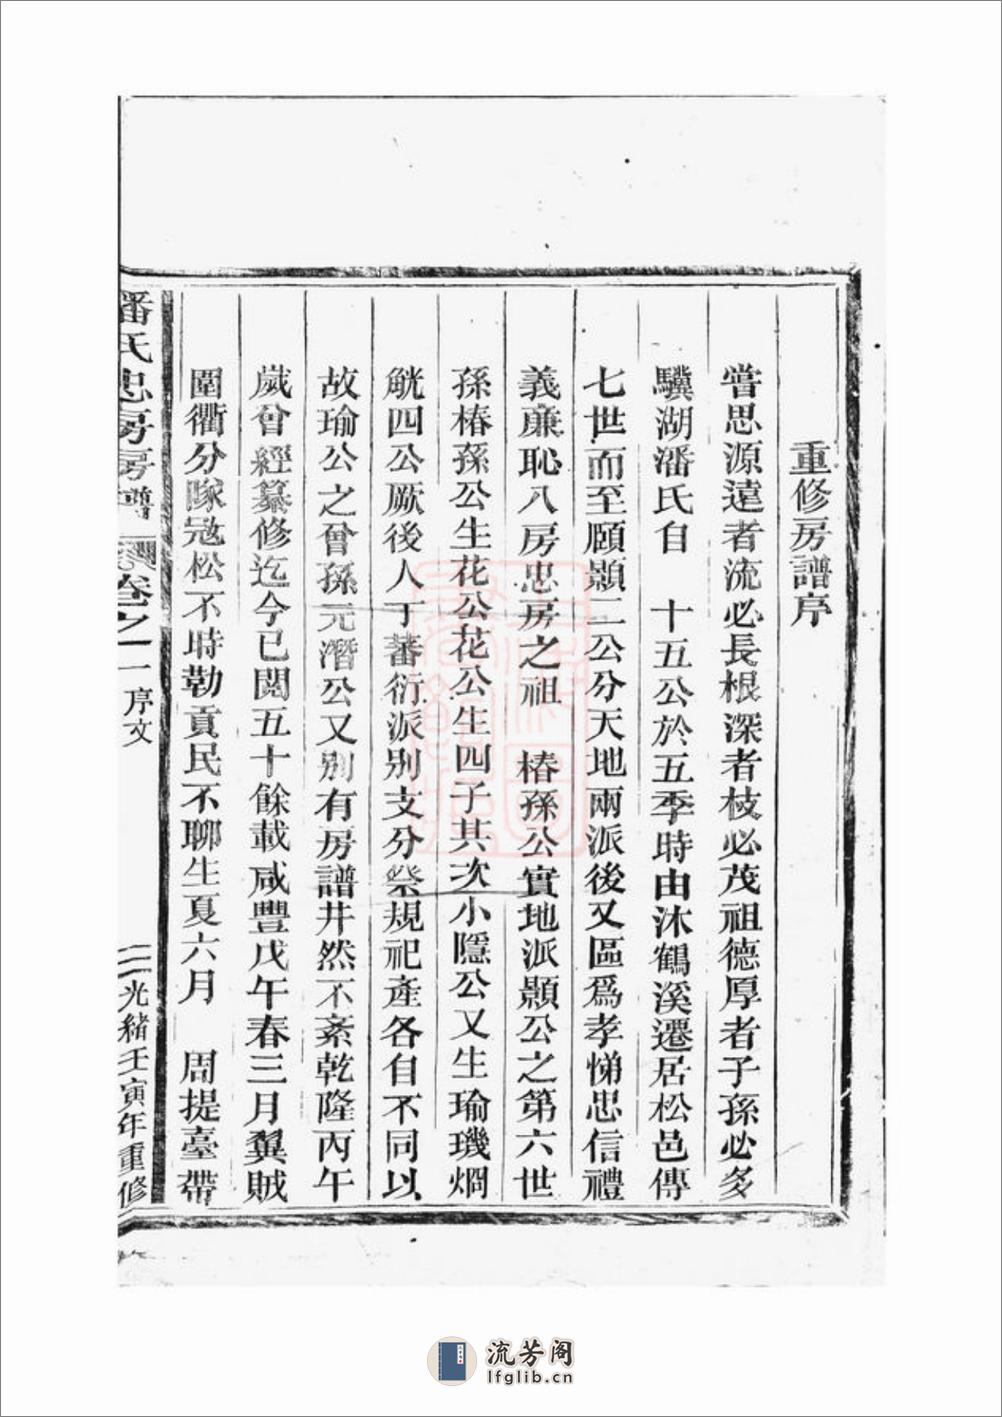 重修房譜序
嘗思源遠者流必長根深者枝必茂祖德厚者子孫必多
驥湖潘氏自　十五公於五季時由沐鶴溪遷居松邑傳
七世而至願顥二公分天地兩派後又區爲孝悌忠信禮
義廉恥八房忠房之祖　椿孫公實地派顥公之第六世
孫椿孫公生花公花公生四子其次小隱公又生瑜璣烱
觥四公厥後人丁蕃衍派別支分祭規祀產各自不同以
故瑜公之曾孫元潛公又別有房譜井然不紊乾隆丙午
歲曾經纂修迄今已閱五十餘載咸豐戊午春三月翼賊
圍衢分隊寇松不時勒貢民不聊生夏六月　周提臺帶
潘氏忠房房譜　卷之一　序文　二　光緒壬寅年重修
流芳阁
lfglib.cn